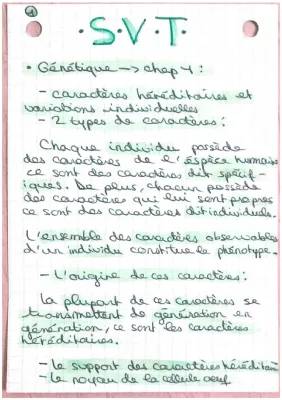 1
S.V.T.
• Génétique → chap 4 :
- caractères héréditaires et
variations individuelles
- 2 types de caractères :
Chaque individu possède
des caractères de l'espèce humaine
ce sont des caractères dit spécif-
iques. De plus, chacun possède
des caractères qui lui sont propres
ce sont des caractères dit individuels.
L'ensemble des caractères observables
d'un individu constitue le phénotype.
- L'origine de ces caractères :
la plupart de ces caractères se
transmettent de génération en
génération, ce sont les caractères
héréditaires.
- le support des caractères héréditair
- le noyau de la cellule oeuf.